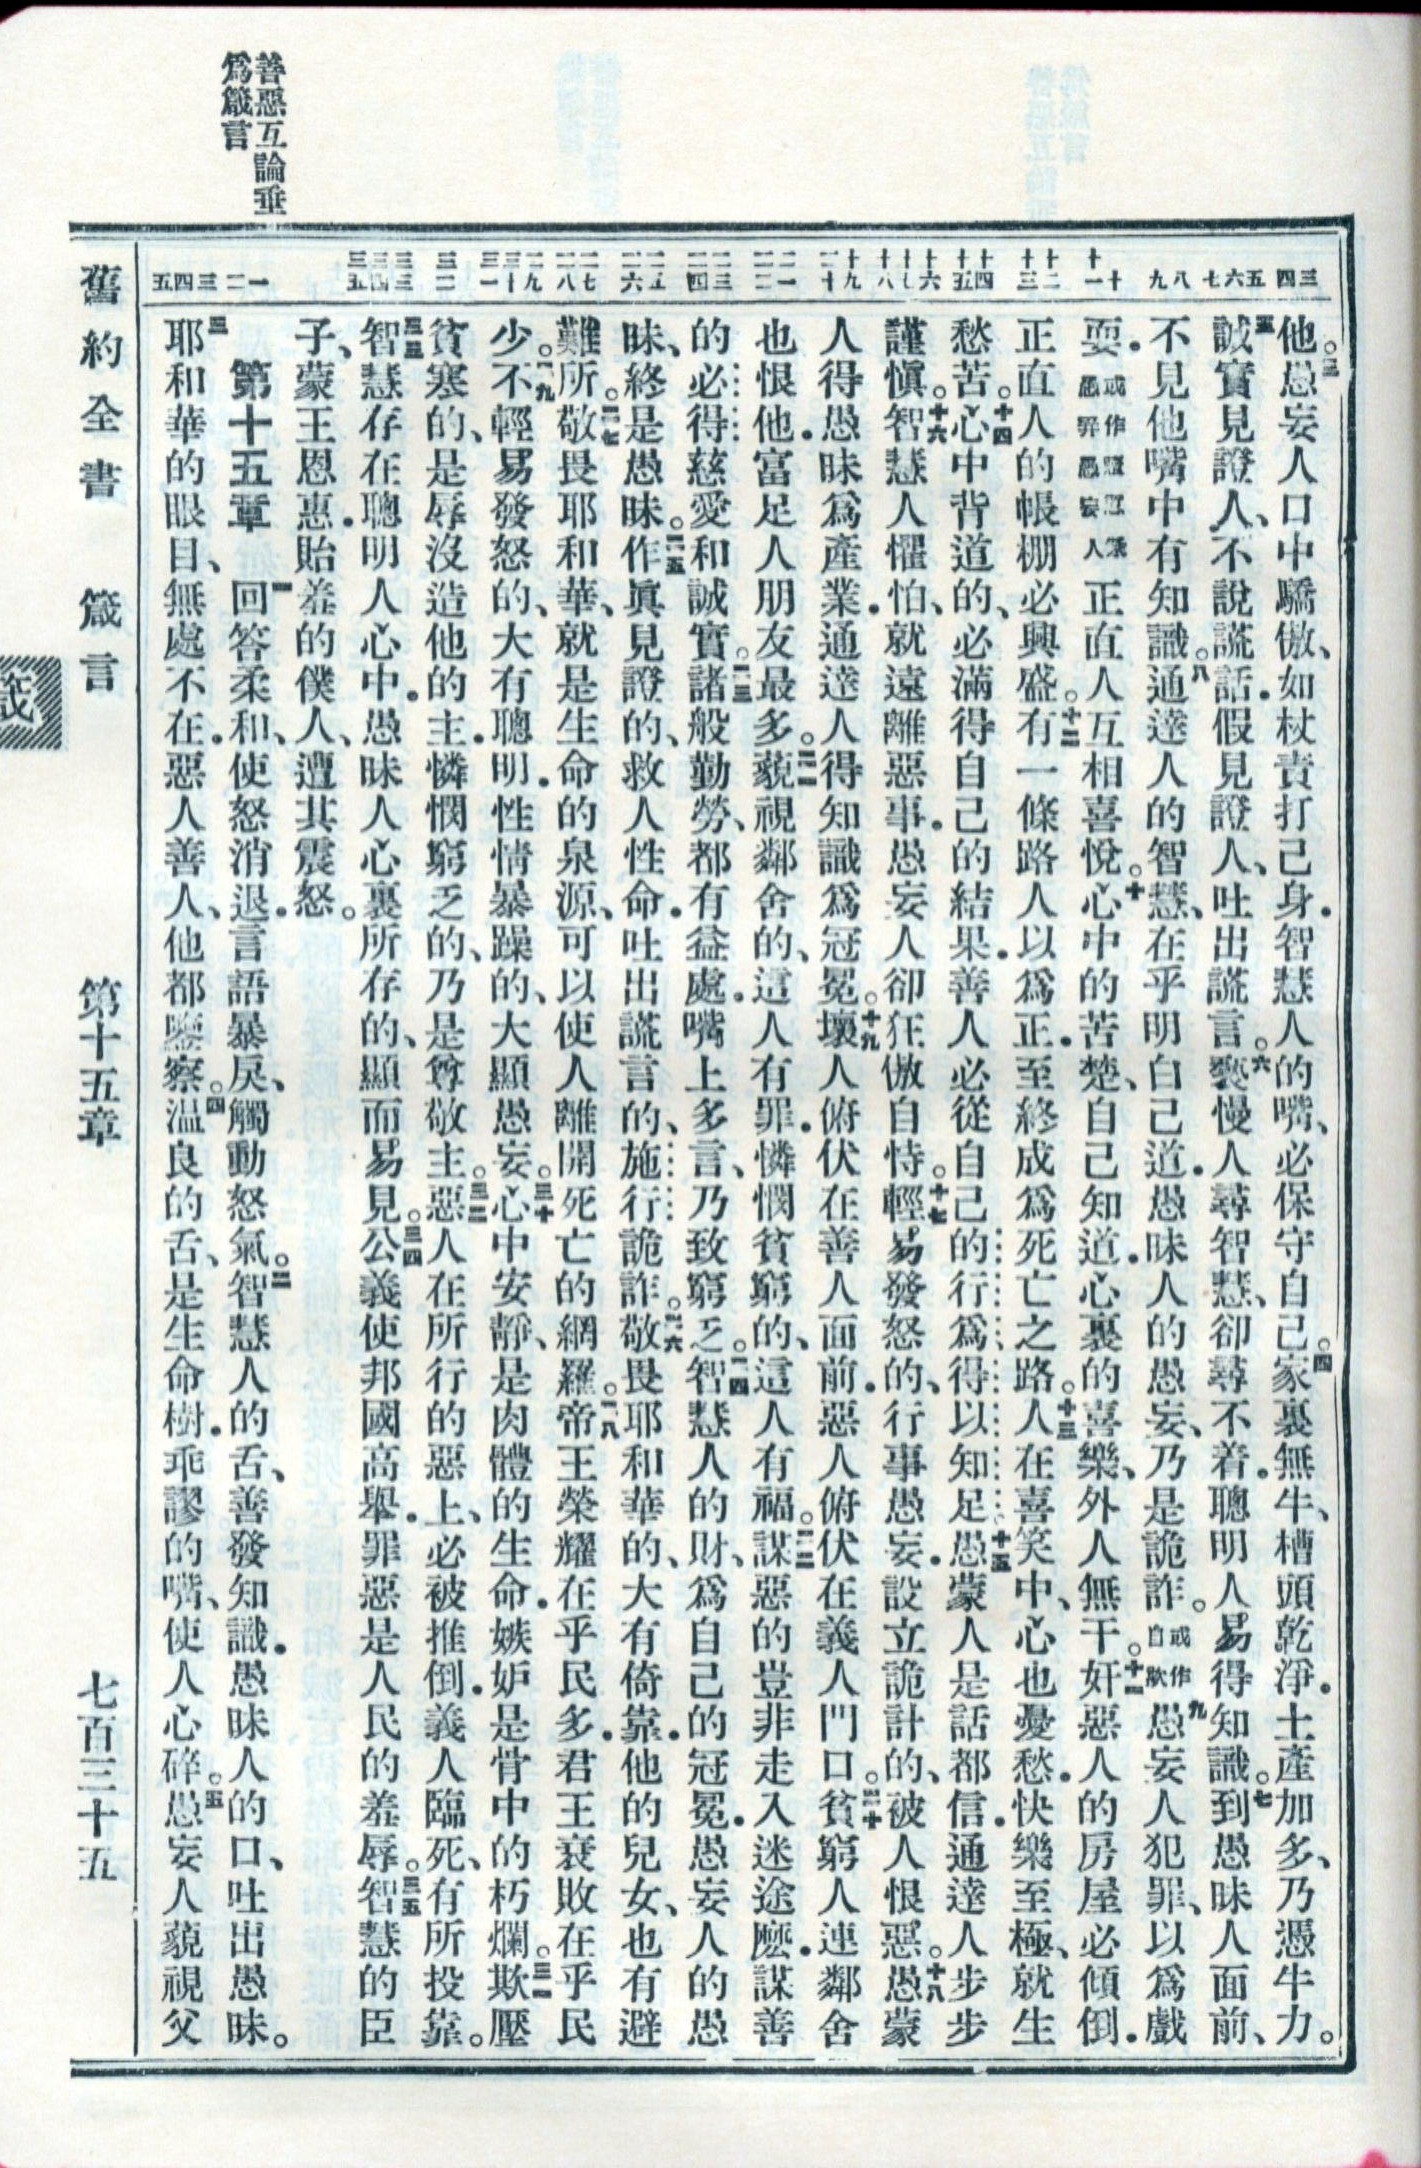 善惡互論垂
爲箴言
三 四 五 六 七 八 九 十 十一 十二 十三 十四 十五 十六 十七 十八 十九 二十 二一 二二 二三 二四 二五 二六 二七 二八 二九 三十 三一 三二 三三 三四 三五 一 二 三 四 五
他。三愚妄人口中驕傲、如杖責打己身．智慧人的嘴、必保守自己。四家裏無牛、槽頭乾淨．土產加多、乃憑牛力。
五誠實見證人、不說謊話．假見證人、吐出謊言。六褻慢人尋智慧、卻尋不着．聰明人易得知識。七到愚昧人面前、
不見他嘴中有知識。八通達人的智慧、在乎明白己道．愚昧人的愚妄、乃是詭詐。或作自欺九愚妄人犯罪、以爲戲
耍．正直人互相喜悅。十心中的苦楚、自己知道．心裏的喜樂、外人無干。十一奸惡人的房屋必傾倒．
正直人的帳棚必興盛。十二有一條路人以爲正．至終成爲死亡之路。十三人在喜笑中、心也憂愁．快樂至極、就生
愁苦。十四心中背道的、必滿得自己的結果．善人必從自己的行爲、得以知足。十五愚蒙人是話都信．通達人步步
謹愼。十六智慧人懼怕、就遠離惡事．愚妄人卻狂傲自恃。十七輕易發怒的、行事愚妄．設立詭計的、被人恨惡。十八愚蒙
人得愚昧爲產業．通達人得知識爲冠冕。十九壞人俯伏在善人面前．惡人俯伏在義人門口。二十貧窮人連鄰舍
也恨他．富足人朋友最多。二一藐視鄰舍的、這人有罪．憐憫貧窮的、這人有福。二二謀惡的豈非走入迷途麽．謀善
的必得慈愛和誠實。二三諸般勤勞、都有益處．嘴上多言、乃致窮乏。二四智慧人的財、爲自己的冠冕．愚妄人的愚
昧、終是愚昧。二五作眞見證的、救人性命．吐出謊言的、施行詭詐。二六敬畏耶和華的、大有倚靠．他的兒女、也有避
難所。二七敬畏耶和華、就是生命的泉源、可以使人離開死亡的網羅。二八帝王榮耀在乎民多．君王衰敗在乎民
少。二九不輕易發怒的、大有聰明．性情暴躁的、大顯愚妄。三十心中安靜、是肉體的生命．嫉妒是骨中的朽爛。三一欺壓
貧寒的、是辱沒造他的主．憐憫窮乏的、乃是尊敬主。三二惡人在所行的惡上、必被推倒．義人臨死、有所投靠。
三三智慧存在聰明人心中．愚昧人心裏所存的、顯而易見。三四公義使邦國高舉．罪惡是人民的羞辱。三五智慧的臣
子、蒙王恩惠．貽羞的僕人、遭其震怒。
第十五章 一回答柔和、使怒消退．言語暴戾、觸動怒氣。二智慧人的舌、善發知識．愚昧人的口、吐出愚昧。
三耶和華的眼目、無處不在．惡人善人、他都鑒察。四溫良的舌、是生命樹．乖謬的嘴、使人心碎。五愚妄人藐視父
舊約全書 箴言 第十五章 七百三十五